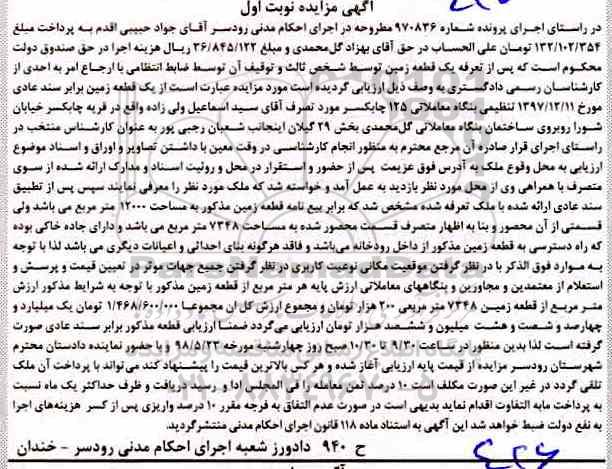 آگهی مزایده نوبت اول
در راستای اجرای پرونده شماره ۹۷۰۸۳۶ مطروحه در اجرای احکام مدنی رودسر آقای جواد حبیبی اقدم به پرداخت مبلغ
۱۳۲/۱۰۲/۳۵۴ تومان علی الحساب در حق آقای بهزاد گل‌محمدی و مبلغ ۳۶/۸۴۵/۱۲۲ ریال هزینه اجرا در حق صندوق دولت
محکوم است که پس از تعرفه یک قطعه زمین توسط شخص ثالث و توقیف آن توسط ضابط انتظامی با ارجاع امر به احدی از
کارشناسان رسمی دادگستری به وصف ذیل ارزیابی گردیده است مورد مزایده عبارت است از یک قطعه زمین برابر سند عادی
مورخ ۱۳۹۷/۱۲/۱۱ تنظیمی بنگاه معاملاتی ۱۲۵ چابکسر مورد تصرف آقای سید اسماعیل ولی زاده واقع در قریه چابکسر خیابان
شورا روبروی ساختمان بنگاه معاملاتی گل‌محمدی بخش ۲۹ گیلان اینجانب شعبان رجبی پور به عنوان کارشناس منتخب در
راستای اجرای قرار صادره آن مرجع محترم به منظور انجام کارشناسی در وقت معین با داشتن تصاویر و اوراق و اسناد موضوع
ارزیابی به محل وقوع ملک به آدرس فوق عزیمت پس از حضور و استقرار در محل و روئیت اسناد و مدارک ارائه شده از سوی
متصرف با همراهی وی از محل مورد نظر بازدید به عمل آمد و خواسته شد که ملک مورد نظر را معرفی نمایند سپس پس از تطبیق
سند عادی ارائه شده با ملک تعرفه شده مشخص شد که برابر بیع نامه قطعه زمین مذکور به مساحت ۱۲۰۰۰ متر مربع می باشد ولی
قسمتی از آن محصور و بنا به اظهار متصرف قسمت محصور شده به مساحت ۷۳۴۸ متر مربع می باشد و دارای جاده خاکی بوده
که راه دسترسی به قطعه زمین مذکور از داخل رودخانه می‌باشد و فاقد هرگونه بنای احداثی و اعیانات دیگری می باشد لذا با توجه
به موارد فوق الذکر با در نظر گرفتن موقعیت مکانی نوعیت کاربری در نظر گرفتن جمیع جهات موثر در تعیین قیمت و پرسش و
استعلام از معتمدین و مجاورین و بنگاههای معاملاتی ارزش پایه هر متر مربع از قطعه زمین مذکور با توجه به شرایط مذکور ارزش
متر مربع از قطعه زمین ۷۳۴۸ متر مربعی ۲۰۰ هزار تومان و مجموع ارزش کل ان مجموعا ۱/۴۶۸/۶۰۰/۰۰۰ تومان یک میلیارد و
چهارصد و شصت و هشت میلیون و ششصد هزار تومان ارزیابی می‌گردد ضمنا ارزیابی قطعه مذکور برابر سند عادی صورت
گرفته است لذا بدین منظور در ساعت ۹/۳۰ تا ۱۰/۳۰ صبح روز چهارشنبه مورخه ۹۸/۵/۲۳ و با حضور نماینده دادستان محترم
شهرستان رودسر مزایده از قیمت پایه ارزیابی آغاز شده و هر کس بالاترین قیمت را پیشنهاد کند می‌تواند با پرداخت آن ملک
تلقی گردد در غیر این صورت مکلف است ۱۰ درصد ثمن معامله را فی المجلس ادا و رسید دریافت و ظرف حداکثر یک ماه نسبت
به پرداخت مابه التفاوت اقدام نماید بدیهی است در صورت عدم التفاق به فرجه مقرر ۱۰ درصد واریزی پس از کسر هزینه‌های اجرا
به نفع دولت ضبط خواهد شد این آگهی به استناد ماده ۱۱۸ قانون اجرای احکام مدنی منتشر گردید.
ح ۹۴۰ دادورز شعبه اجرای احکام مدنی رودسر - خندان